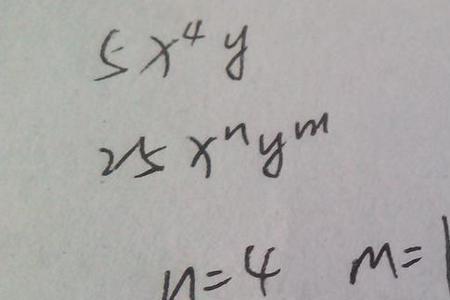 5x⁴y
25xⁿyᵐ
n=4 m=1